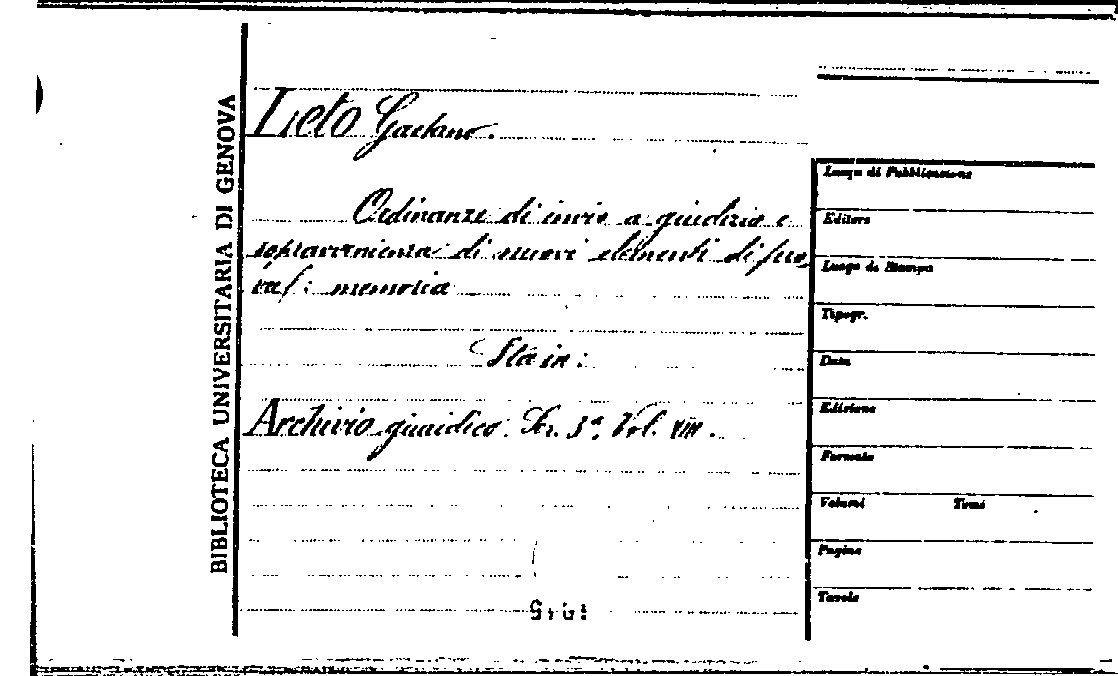 BIBLIOTECA UNIVERSITARIA DI GENOVA
Lieto Gaetano.
Ordinanze di invio a giudizio e
sopravvenienza di nuovi elementi di pro
va : memoria
Sta in:
Archivio giuridico. Ser. 3ª. Vol. VIII.
Luogo di Pubblicazione
Editore
Luogo di Stampa
Tipogr.
Data
Edizione
Formato
Volumi Tomi
Pagine
Tavole